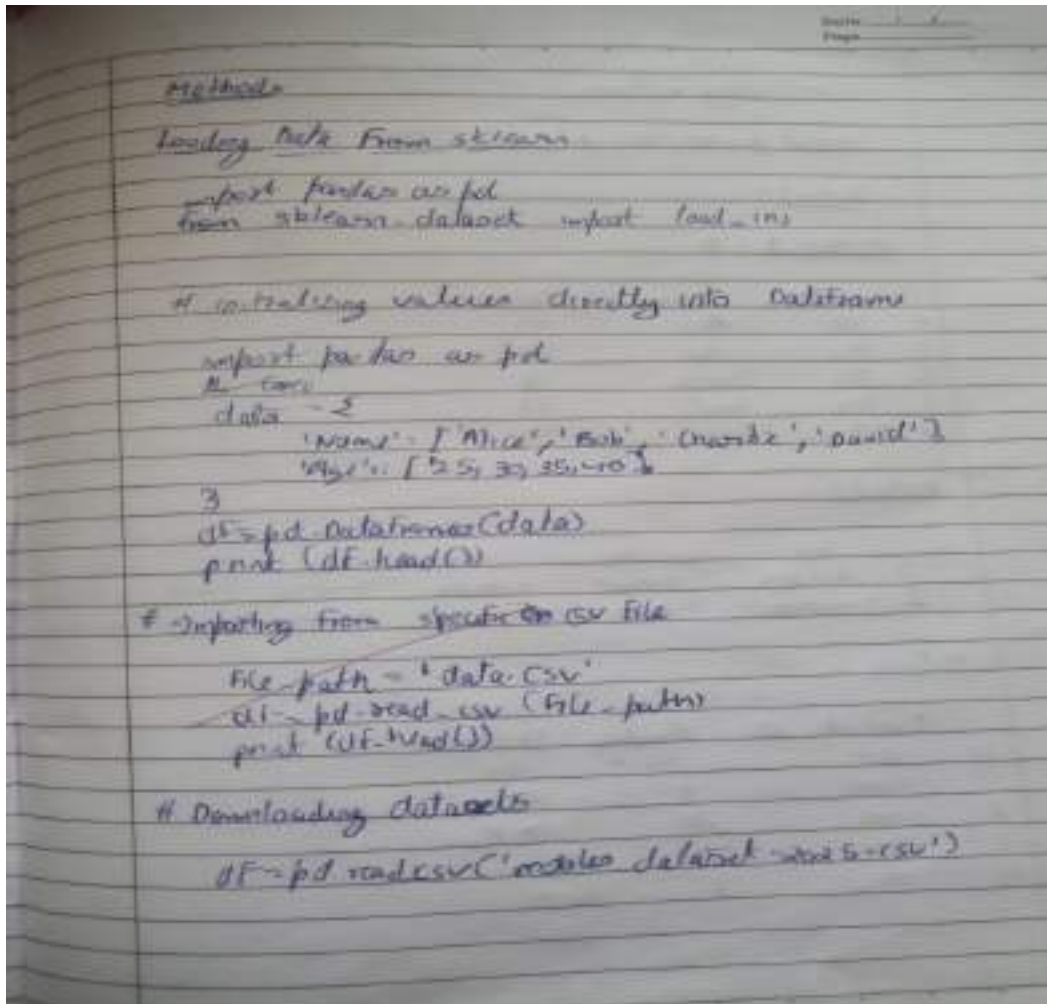 Date
Page
Methods
Loading Data From sklearn
import pandas as pd
from sklearn.dataset import load_
# initialising values directly into Dataframe
import pandas as pd
data = {
'Name': ['Alice', 'Bob', 'Charlie', 'David']
'Age': [25, 30, 35, 40]
}
df = pd.Dataframe(data)
print (df.head())
# Importing from specific csv file
file_path = 'data.csv'
df = pd.read_csv (file_path)
print (df.head())
# Downloading datasets
df = pd.readcsv('mobiles_dataset_2025.csv')